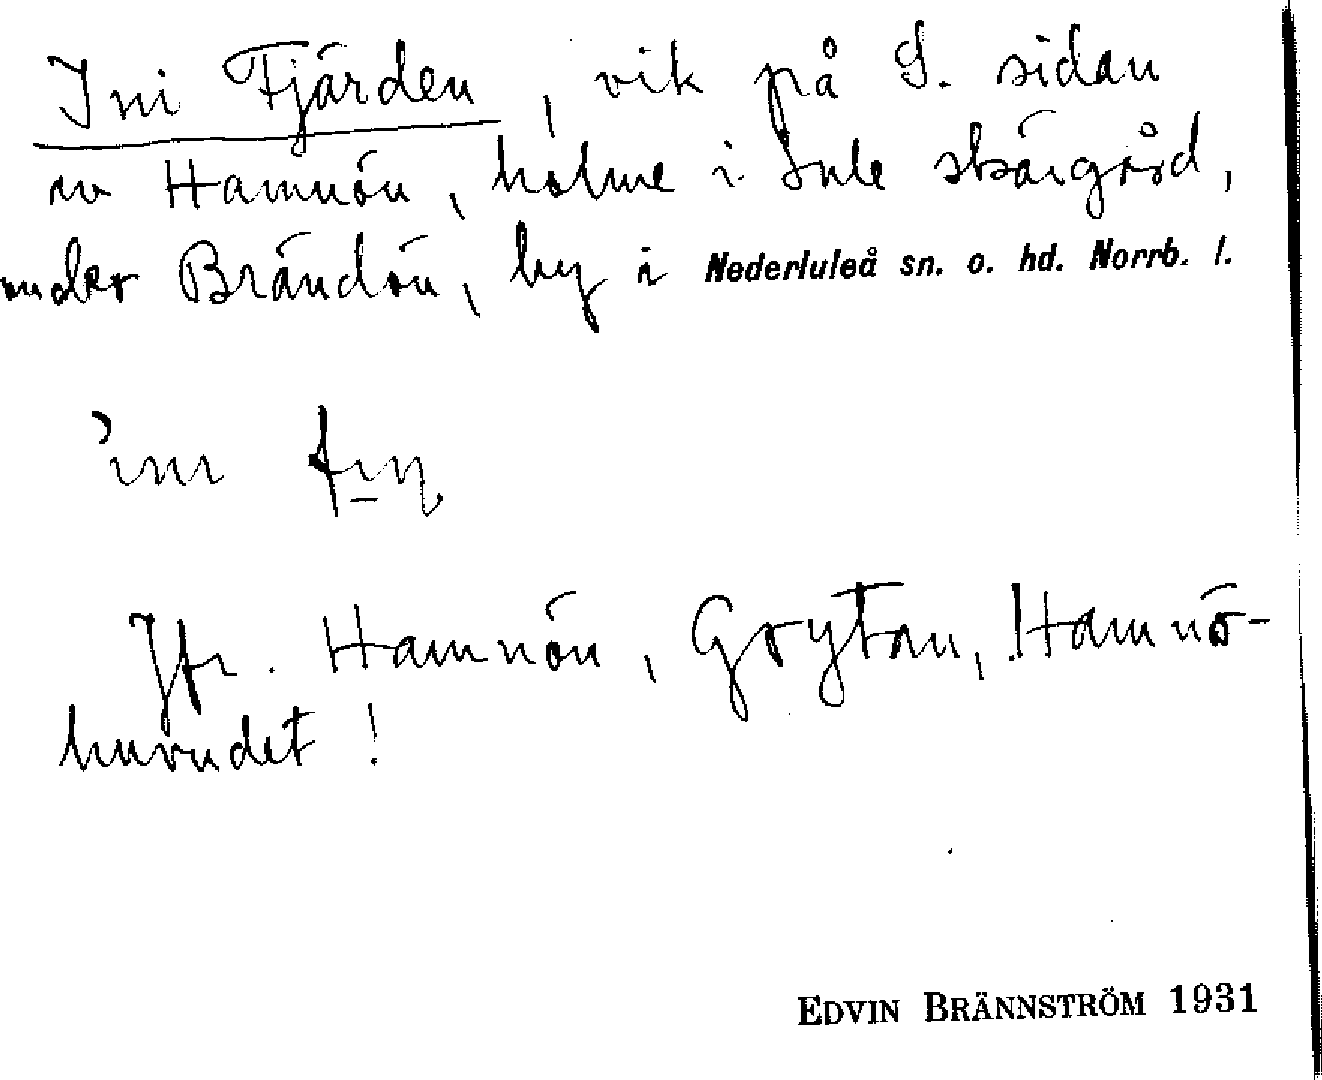 Ini Fjärden, vik på S. sidan
av Hamnön, holme i Lule skärgård,
under Brändön, by i Nederluleå sn. o. hd. Norrb. l.
Jfr. Hamnön, Grytan, Hamnö-
huvudet!
EDVIN BRÄNNSTRÖM 1931